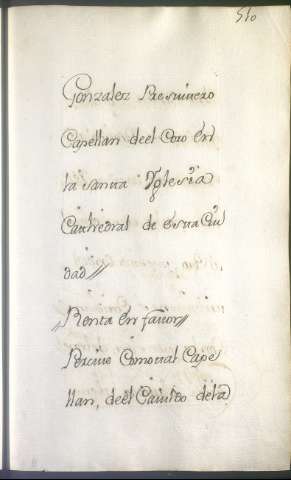 510
Gonzalez Presuitero
Capellan deel Coro en
la santa Yglesia
Cathedral de esta Ciu
dad//
//Renta en favor//
Perciue Comotal Cape
llan, deel Cauildo dela